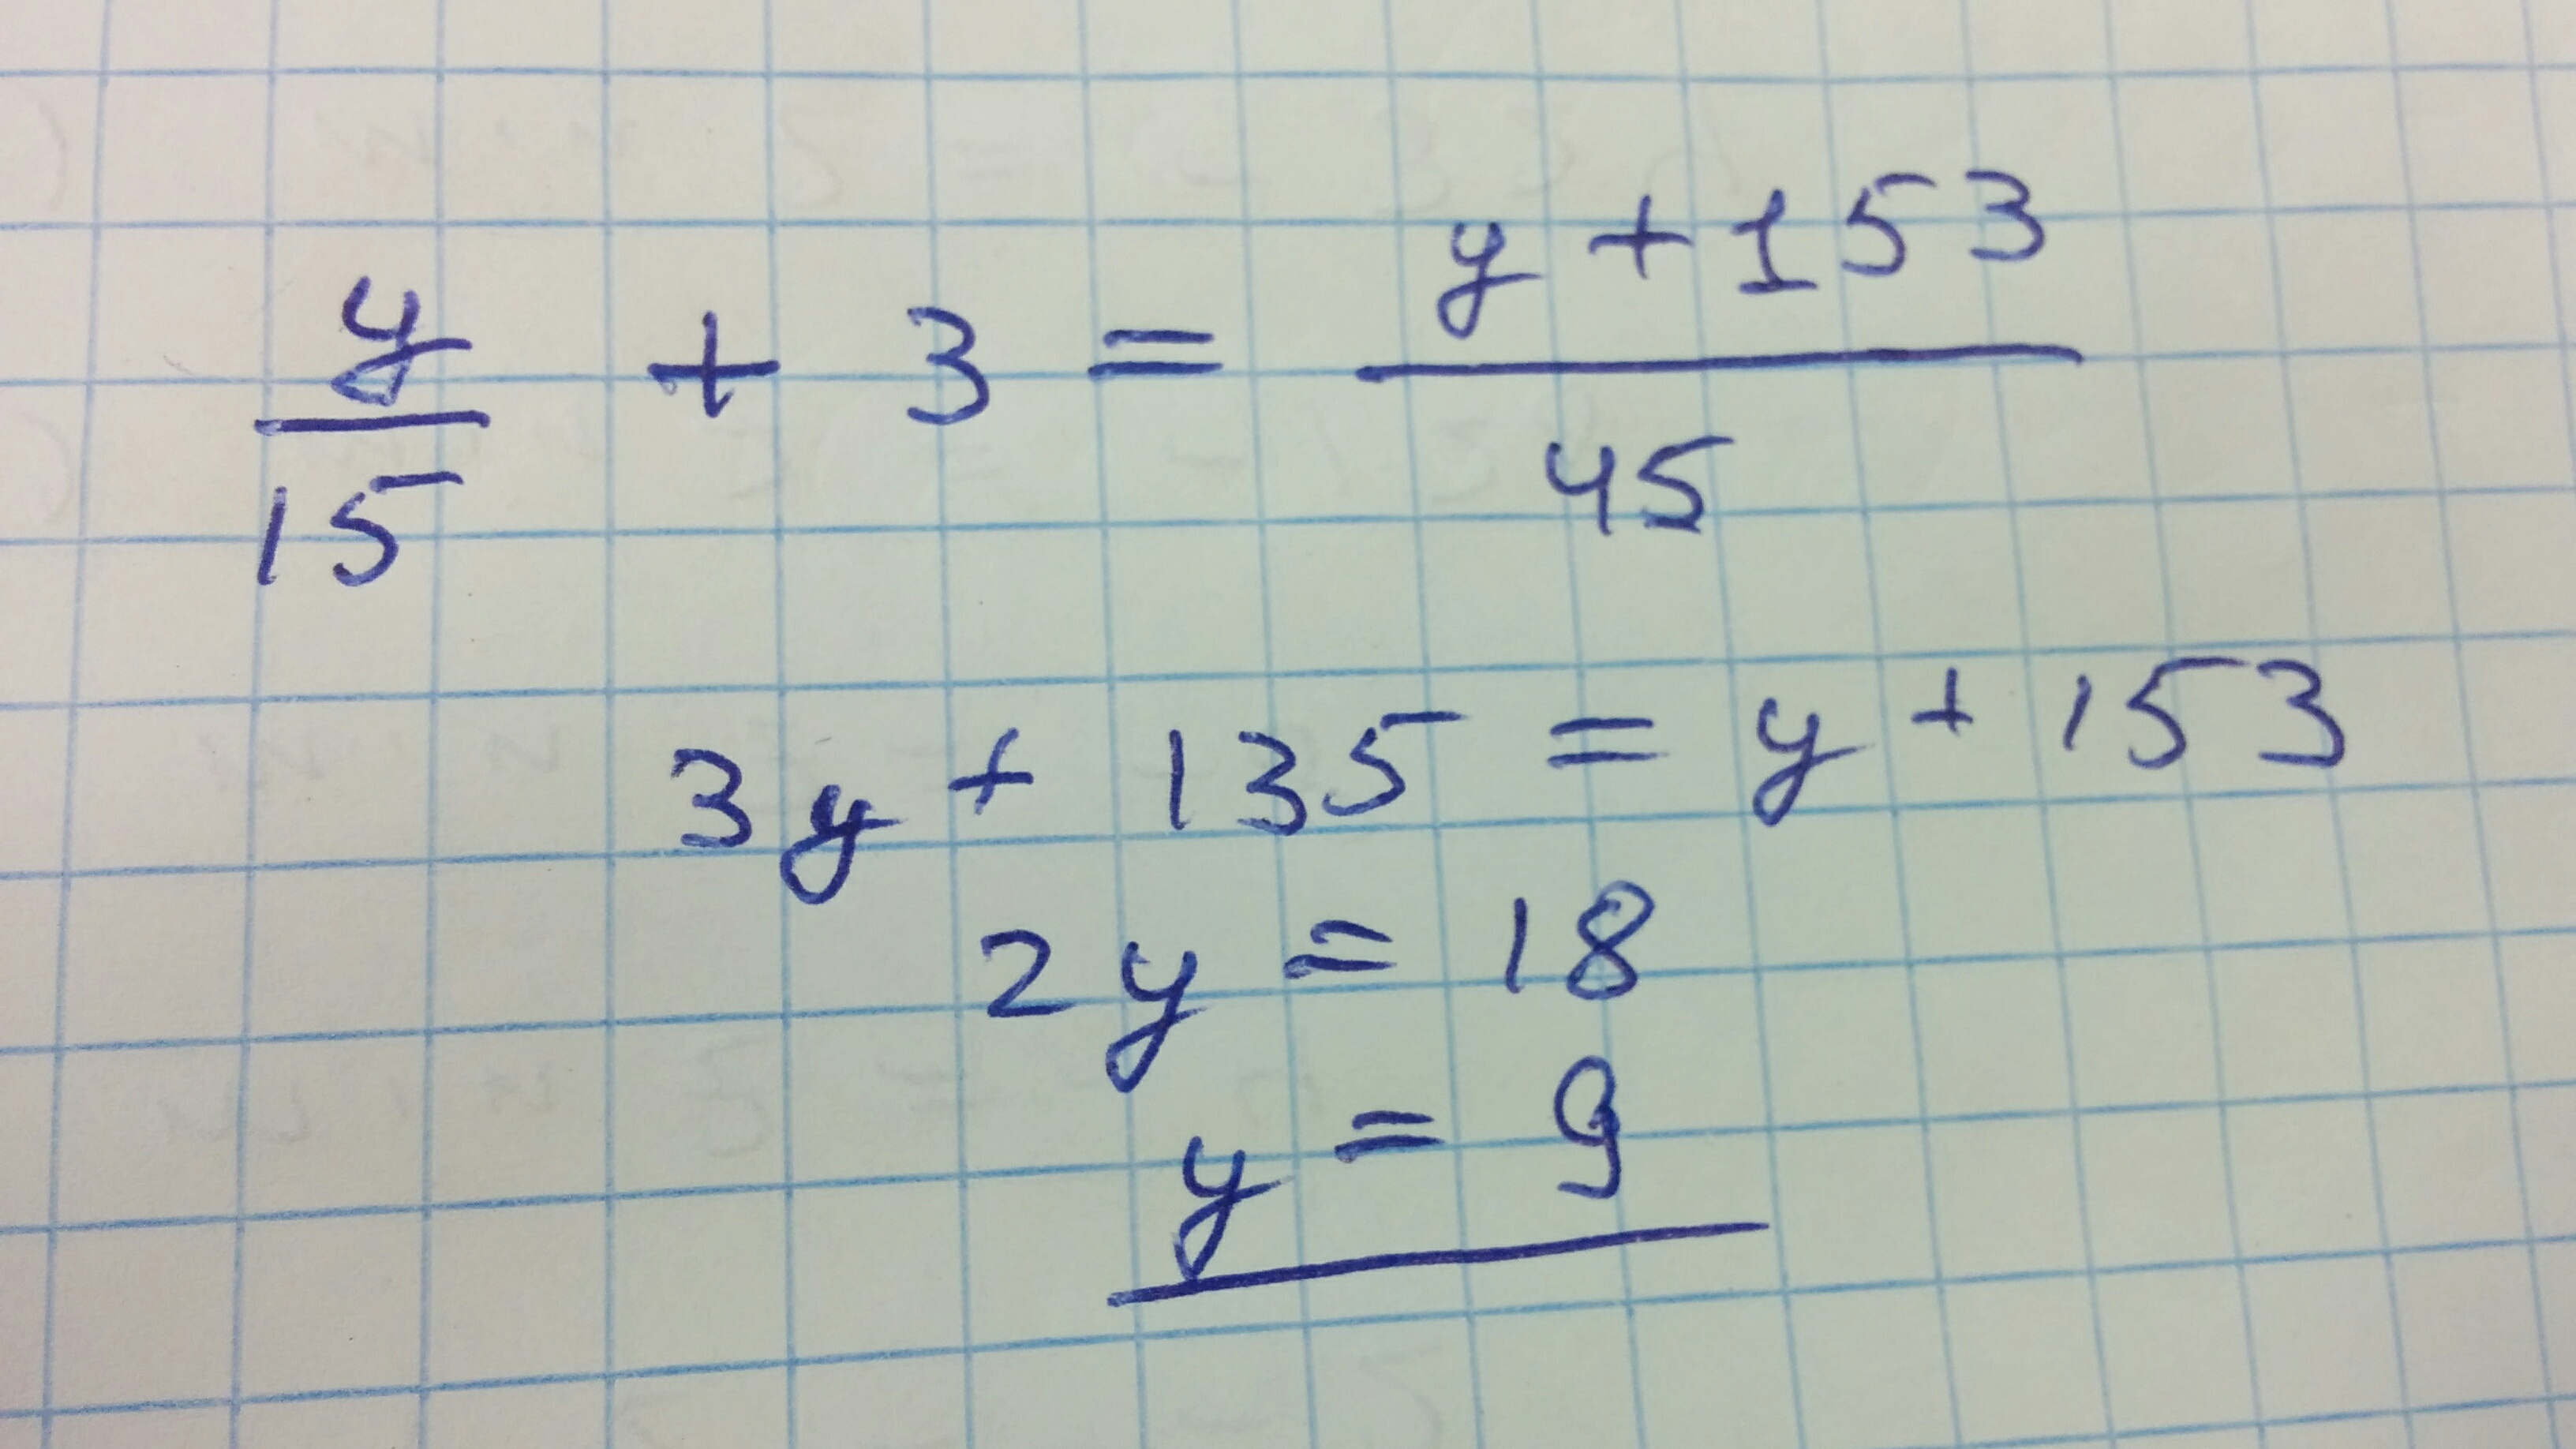 y/15 + 3 = y + 153/45
3y + 135 = y + 153
2y = 18
y = 9